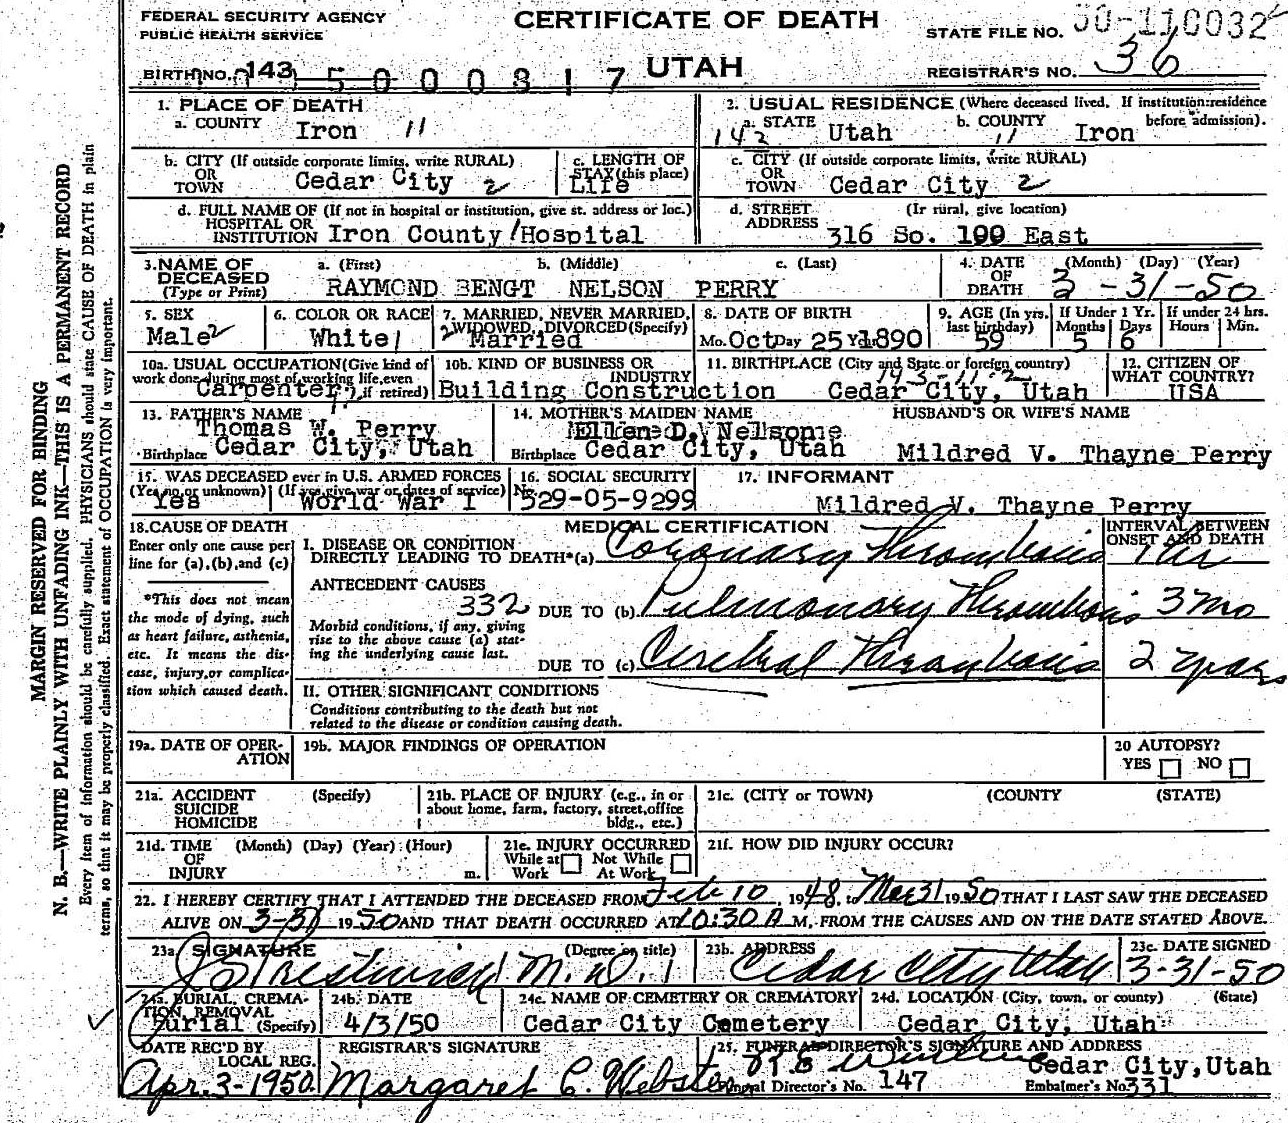 FEDERAL SECURITY AGENCY
PUBLIC HEALTH SERVICE
CERTIFICATE OF DEATH
STATE FILE NO. 50-110032
BIRTH NO. 143 5000317
UTAH
REGISTRAR'S NO. 36
1. PLACE OF DEATH
a. COUNTY Iron 11
2. USUAL RESIDENCE (Where deceased lived. If institution:residence before admission).
142 a. STATE Utah b. COUNTY 11 Iron
b. CITY (If outside corporate limits, write RURAL)
OR
TOWN Cedar City 2
c. LENGTH OF
STAY (this place)
Life
c. CITY (If outside corporate limits, write RURAL)
OR
TOWN Cedar City 2
d. FULL NAME OF (If not in hospital or institution, give st. address or loc.)
HOSPITAL OR
INSTITUTION Iron County Hospital
d. STREET (If rural, give location)
ADDRESS 316 So. 100 East
3. NAME OF
DECEASED
(Type or Print)
a. (First) b. (Middle) c. (Last)
RAYMOND BENGT NELSON PERRY
4. DATE (Month) (Day) (Year)
OF
DEATH 3-31-50
5. SEX
Male 2
6. COLOR OR RACE
White 1
7. MARRIED, NEVER MARRIED,
2 WIDOWED, DIVORCED (Specify)
Married
8. DATE OF BIRTH
Mo. Oct Day 25 Yr. 1890
9. AGE (In yrs.
last birthday)
59
If Under 1 Yr.
Months Days
5 6
If under 24 hrs.
Hours Min.
10a. USUAL OCCUPATION (Give kind of
work done during most of working life, even
if retired)
Carpenter
10b. KIND OF BUSINESS OR
INDUSTRY
Building Construction
11. BIRTHPLACE (City and State or foreign country)
Cedar City, Utah
12. CITIZEN OF
WHAT COUNTRY?
USA
13. FATHER'S NAME
Thomas W. Perry
Birthplace Cedar City, Utah
14. MOTHER'S MAIDEN NAME
Ellen D. Nelson
Birthplace Cedar City, Utah
HUSBAND'S OR WIFE'S NAME
Mildred V. Thayne Perry
15. WAS DECEASED ever in U.S. ARMED FORCES
(Yes, no, or unknown) (If yes, give war or dates of service)
Yes World War I
16. SOCIAL SECURITY
No. 529-05-9299
17. INFORMANT
Mildred V. Thayne Perry
18. CAUSE OF DEATH
Enter only one cause per
line for (a), (b), and (c)
*This does not mean
the mode of dying, such
as heart failure, asthenia,
etc. It means the dis-
ease, injury, or complica-
tion which caused death.
MEDICAL CERTIFICATION
INTERVAL BETWEEN
ONSET AND DEATH
I. DISEASE OR CONDITION
DIRECTLY LEADING TO DEATH* (a) Coronary Thrombosis 1 hr
ANTECEDENT CAUSES
332 DUE TO (b) Pulmonary Thrombosis 3 mo
Morbid conditions, if any, giving
rise to the above cause (a) stat-
ing the underlying cause last.
DUE TO (c) Cerebral Thrombosis 2 years
II. OTHER SIGNIFICANT CONDITIONS
Conditions contributing to the death but not
related to the disease or condition causing death.
19a. DATE OF OPER-
ATION
19b. MAJOR FINDINGS OF OPERATION
20 AUTOPSY?
YES NO
21a. ACCIDENT (Specify)
SUICIDE
HOMICIDE
21b. PLACE OF INJURY (e.g., in or
about home, farm, factory, street, office
bldg., etc.)
21c. (CITY or TOWN) (COUNTY (STATE)
21d. TIME (Month) (Day) (Year) (Hour)
OF
INJURY m.
21e. INJURY OCCURRED
While at Work Not While At Work
21f. HOW DID INJURY OCCUR?
22. I HEREBY CERTIFY THAT I ATTENDED THE DECEASED FROM Feb 10, 1948, to Mar 31 1950 THAT I LAST SAW THE DECEASED
ALIVE ON 3-31 1950 AND THAT DEATH OCCURRED AT 10:30 A M. FROM THE CAUSES AND ON THE DATE STATED ABOVE.
23a SIGNATURE (Degree or title)
M.D. 1
23b. ADDRESS
Cedar City Utah
23c. DATE SIGNED
3-31-50
24a. BURIAL, CREMA-
TION, REMOVAL
Burial (Specify)
24b. DATE
4/3/50
24c. NAME OF CEMETERY OR CREMATORY
Cedar City Cemetery
24d. LOCATION (City, town, or county) (State)
Cedar City, Utah
DATE REC'D BY
LOCAL REG.
Apr. 3-1950
REGISTRAR'S SIGNATURE
Margaret C. Webster
25. FUNERAL DIRECTOR'S SIGNATURE AND ADDRESS
Cedar City, Utah
Funeral Director's No. 147 Embalmer's No. 331
MARGIN RESERVED FOR BINDING
N. B.—WRITE PLAINLY WITH UNFADING INK—THIS IS A PERMANENT RECORD
Every item of information should be carefully supplied. PHYSICIANS should state CAUSE OF DEATH in plain
terms, so that it may be properly classified. Exact statement of OCCUPATION is very important.